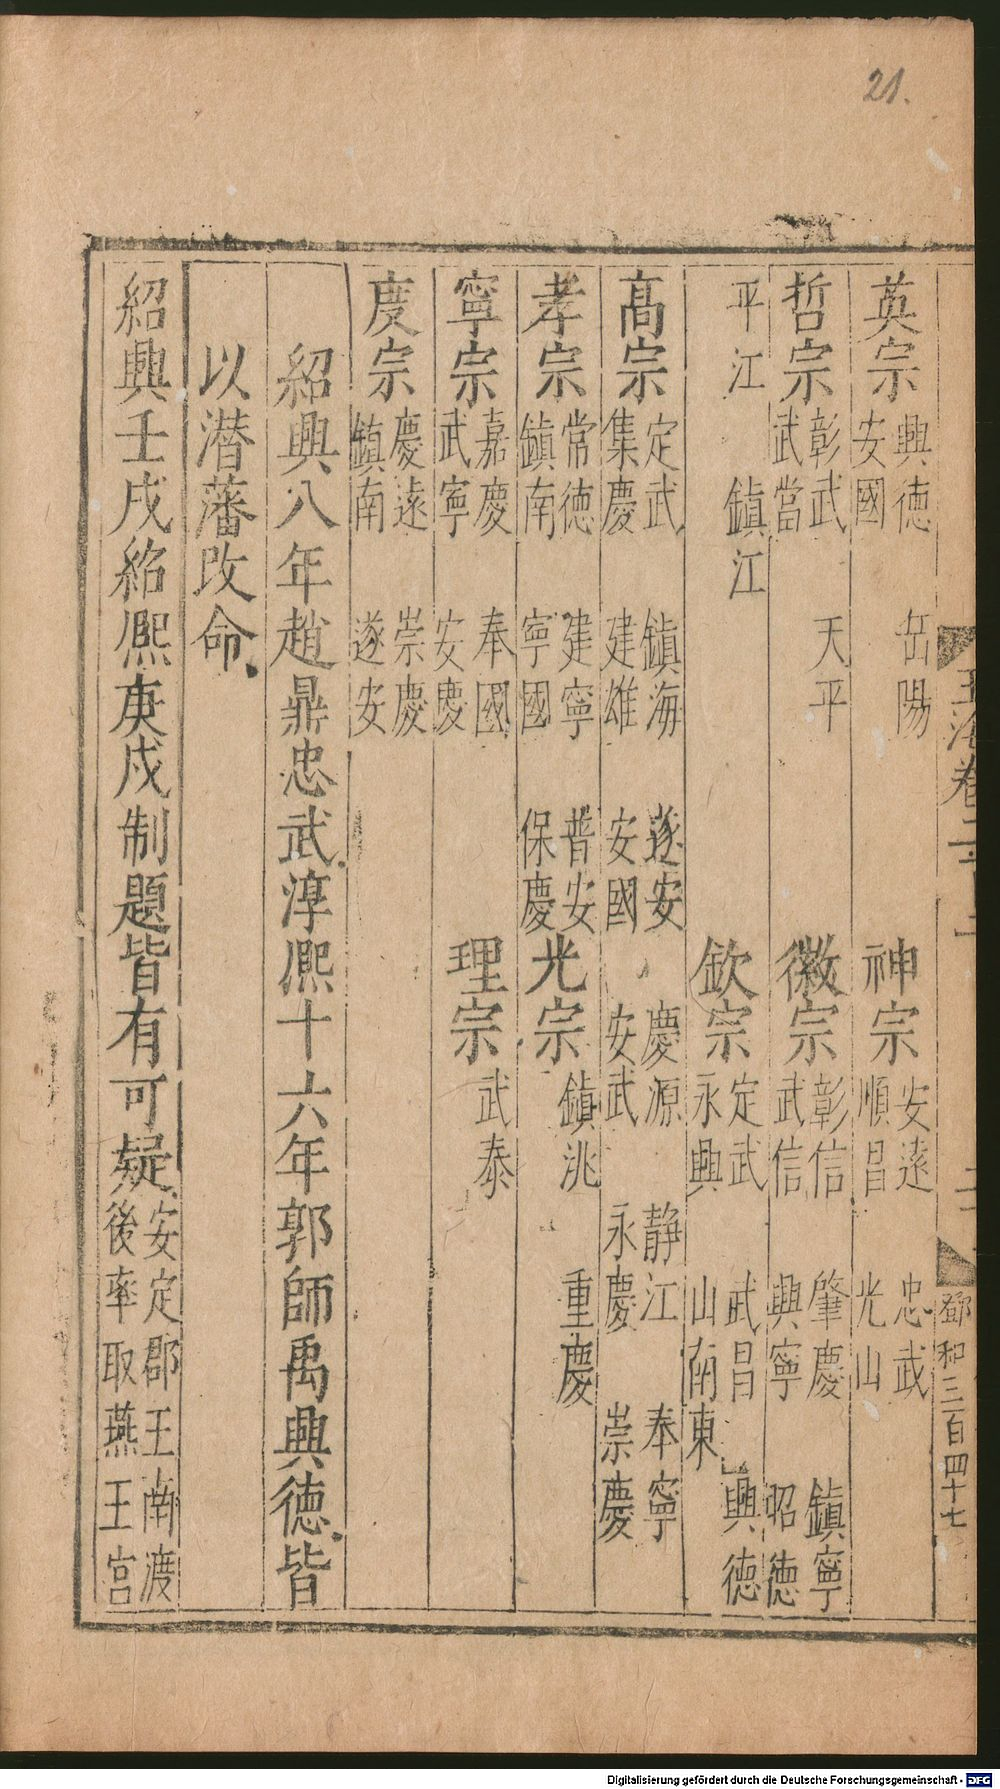 21.
玉海卷二百二
鄧和三百四十七
英宗 興德 岳陽 安國 神宗 安遠 忠武 順昌 光山
哲宗 彰武 天平 武當 徽宗 彰信 肇慶 鎮寧 武信 興寧 昭德
平江 鎮江 欽宗 定武 武昌 興德 永興 山南東
髙宗 定武 鎮海 遂安 慶源 静江 奉寧 集慶 建雄 安國 安武 永慶 崇慶
孝宗 常德 建寧 普安 鎮南 寧國 保慶 光宗 鎮洮 重慶
寧宗 嘉慶 奉國 武寧 安慶 理宗 武泰
度宗 慶遠 崇慶 鎮南 遂安
紹興八年趙鼎忠武淳熈十六年郭師禹興德皆
以潜藩改命
紹興壬戌紹熈庚戌制題皆有可疑 安定郡王南渡 後率取燕王宫
Digitalisierung gefördert durch die Deutsche Forschungsgemeinschaft - DFG